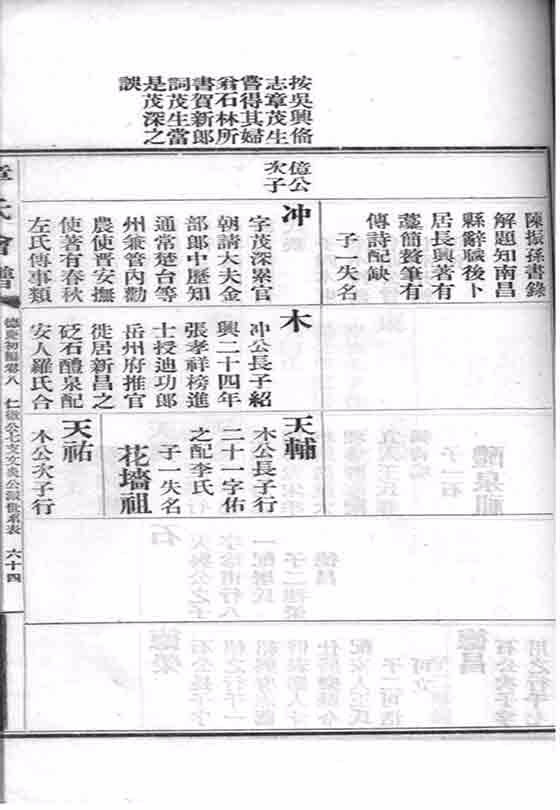 按吳興俻
志章茂生
嘗得其婦
翁石林所
書賀新郎
詞茂生當
是茂深之
誤
陳振孫書錄
解題知南昌
縣辭職後卜
居長興著有
藁簡贅筆有
傳詩配缺
子一失名
億公
次子
冲
字茂深累官
朝請大夫金
部郎中歷知
通常楚台等
州兼管內勸
農使晋安撫
使著有春秋
左氏傳事類
木
冲公長子紹
興二十四年
張孝祥榜進
士授迪功郎
岳州府推官
徙居新昌之
砭石醴泉配
安人羅氏合
天輔
木公長子行
二十一字佑
之配李氏
子一失名
花墻祖
天祐
木公次子行
章氏會譜
德慶初編卷八
仁徹公七支文炎公派世系表
六十四